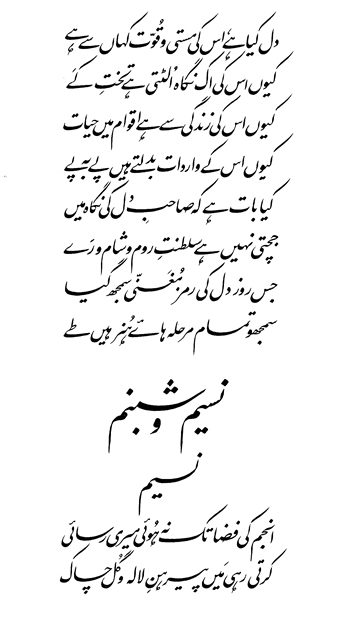 دل کیا ہے اس کی مستی و قوّت کہاں سے ہے
کیوں اس کی اک نگاہ اُلٹتی ہے تختِ کَے
کیوں اس کی زندگی سے ہے اقوام میں حیات
کیوں اس کے واردات بدلتے ہیں پے بہ پے
کیا بات ہے کہ صاحبِ دل کی نگاہ میں
جچتی نہیں ہے سلطنتِ روم و شام و رَے
جس روز دل کی رمز مُغنّی سمجھ گیا
سمجھو تمام مرحلہ ہائے ہُنر ہیں طے
نسیم و شبنم
نسیم
انجم کی فضا تک نہ ہُوئی میری رسائی
کرتی رہی مَیں پیرہنِ لالہ و گُل چاک